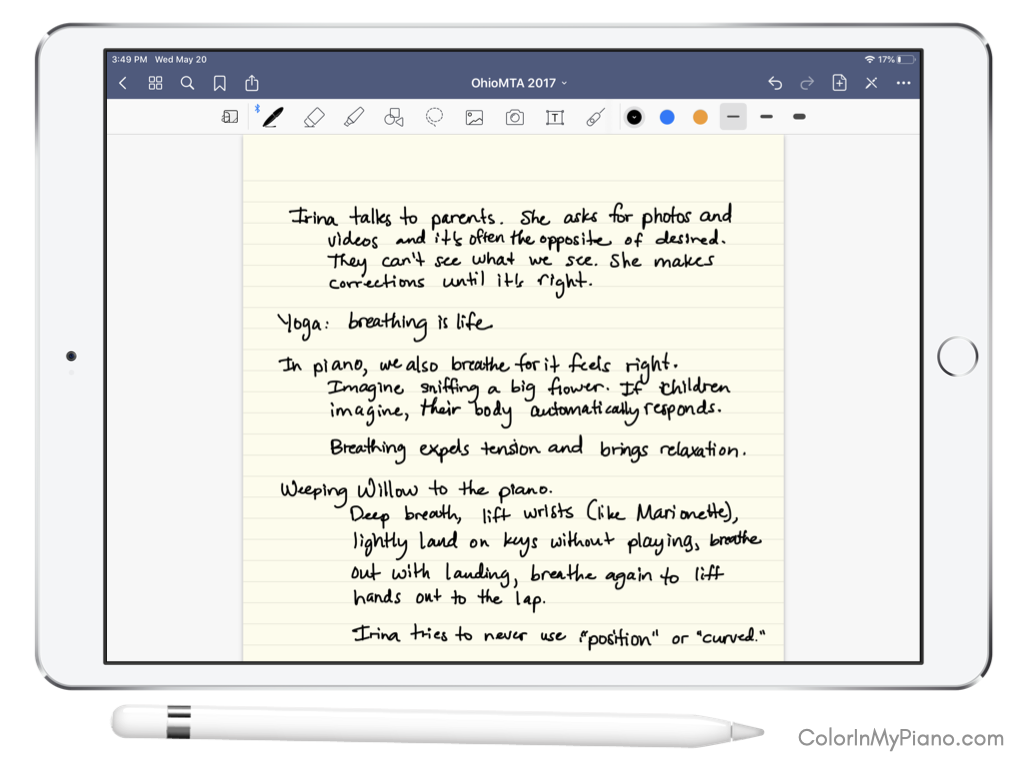 3:49 PM Wed May 20
17%
OhioMTA 2017
T
Irina talks to parents. She asks for photos and
videos and it's often the opposite of desired.
They can't see what we see. She makes
corrections until it's right.
Yoga: breathing is life
In piano, we also breathe for it feels right.
Imagine sniffing a big flower. If children
imagine, their body automatically responds.
Breathing expels tension and brings relaxation.
Weeping Willow to the piano.
Deep breath, lift wrists (like Marionette),
lightly land on keys without playing, breathe
out with landing, breathe again to lift
hands out to the lap.
Irina tries to never use "position" or "curved."
ColorInMyPiano.com